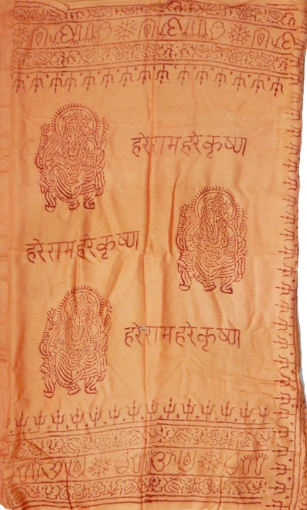 हरे राम हरे कृष्ण
हरे राम हरे कृष्ण
हरे राम हरे कृष्ण